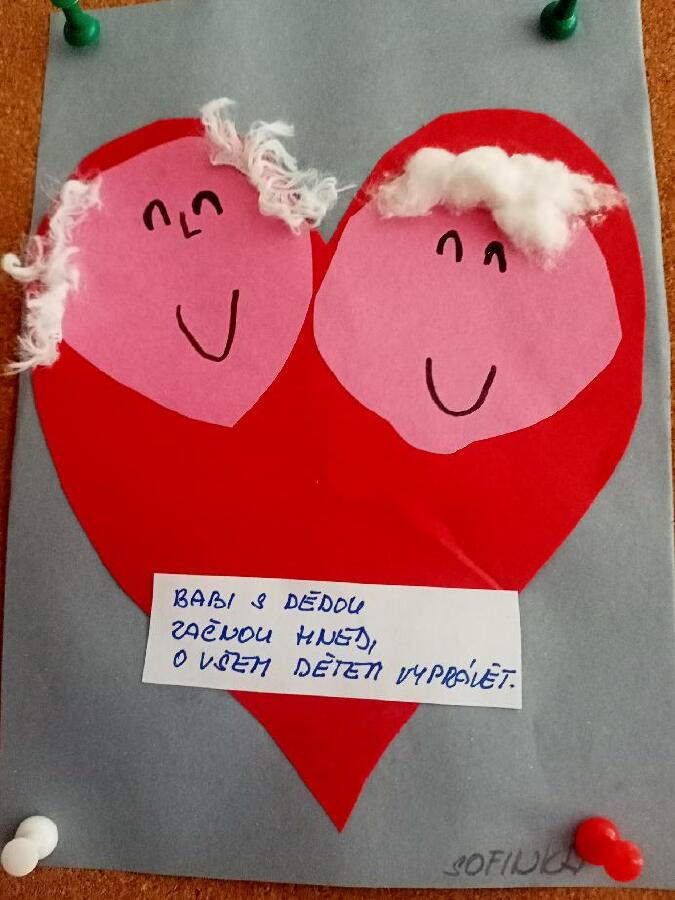 BABI S DĚDOU
ZAČNOU HNED,
O VŠEM DĚTEM VYPRÁVĚT.
SOFINKA